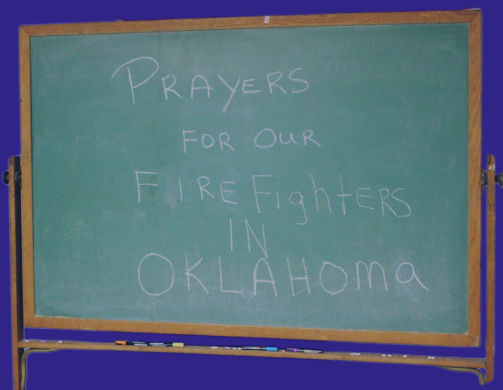 PRAYERS
FOR OUR
FIREFighTERS
IN
OKLAHOma